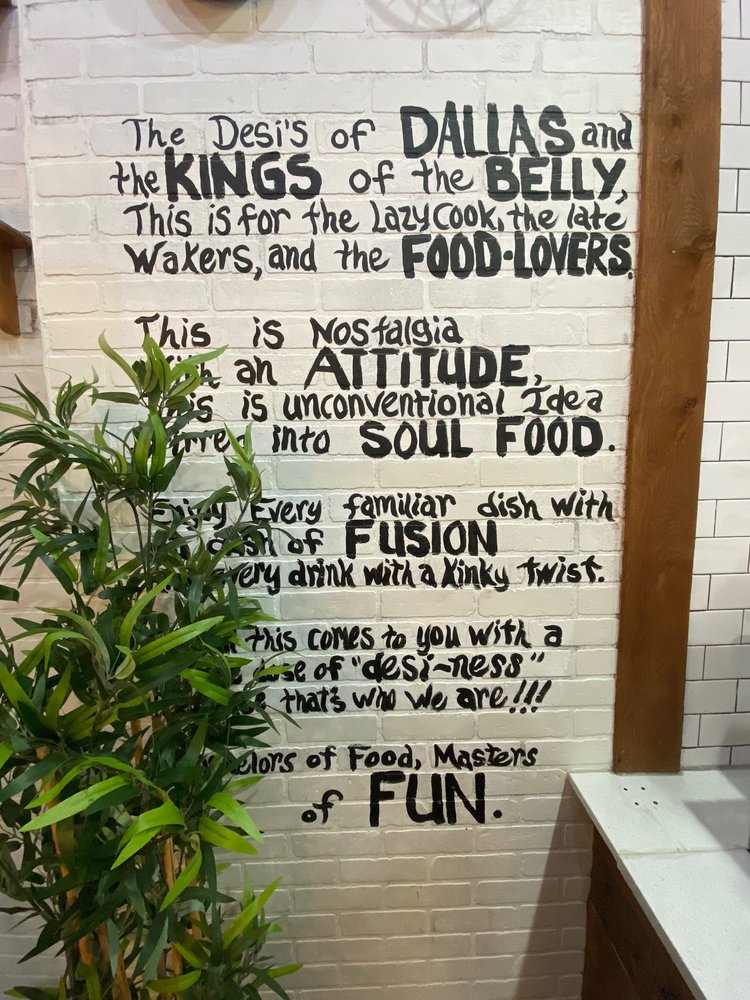 The Desi's of DALLAS and
the KINGS of the BELLY,
This is for the Lazy Cook, the late
Wakers, and the FOOD-LOVERS.
This is Nostalgia
an ATTITUDE,
is unconventional Idea
into SOUL FOOD.
Enjoy Every familiar dish with
of FUSION
every drink with a kinky twist.
this comes to you with a
dose of "desi-ness"
that's who we are!!!
of Food, Masters
of FUN.